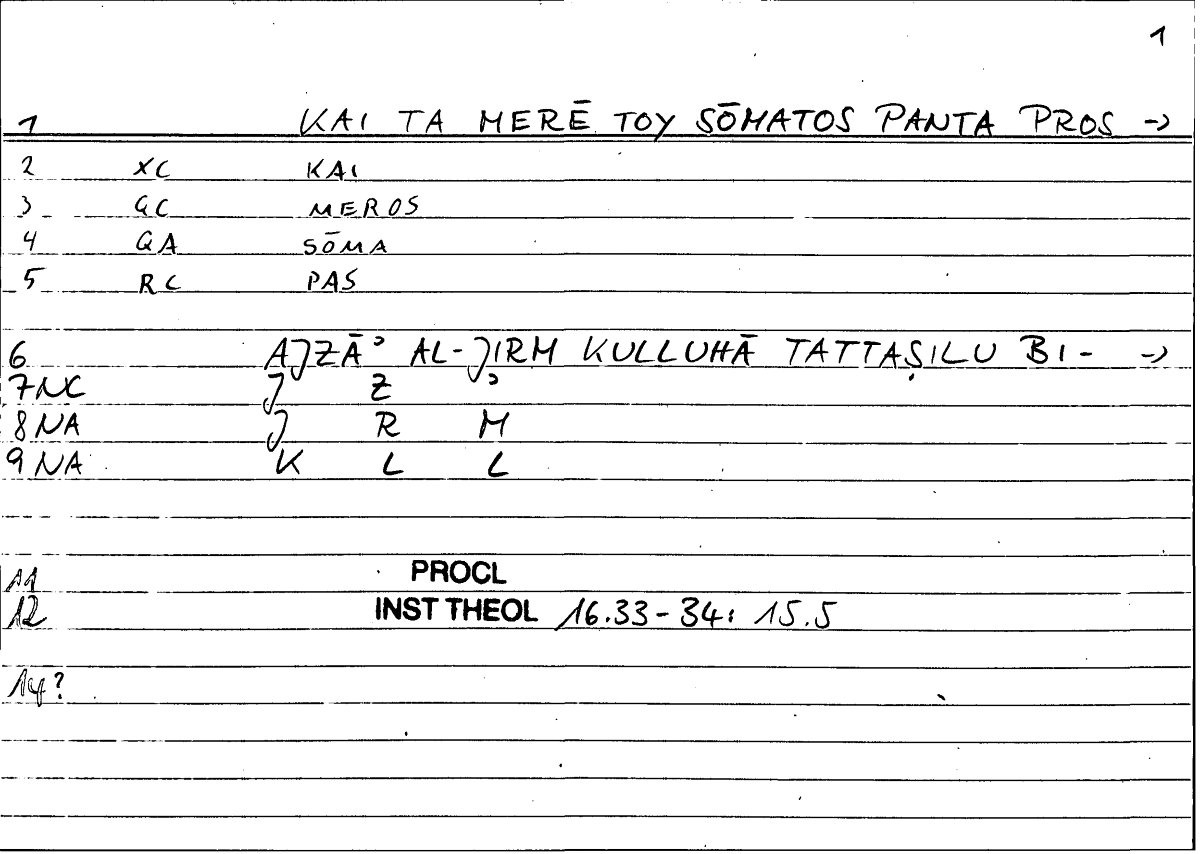 1
1 KAI TA MERĒ TOY SŌMATOS PANTA PROS →
2 XC KAI
3 GC MEROS
4 GA SŌMA
5 RC PAS
6 AJZĀʾ AL-JIRM KULLUHĀ TATTAṢILU BI- →
7 NC J Z ʾ
8 NA J R M
9 NA K L L
11 PROCL
12 INST THEOL 16.33-34: 15.5
14?